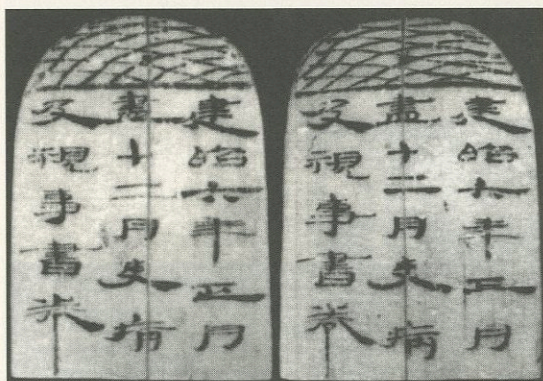 建昭六年正月
盡十二月吏病
及視事書卷
建昭六年正月
盡十二月吏病
及視事書卷